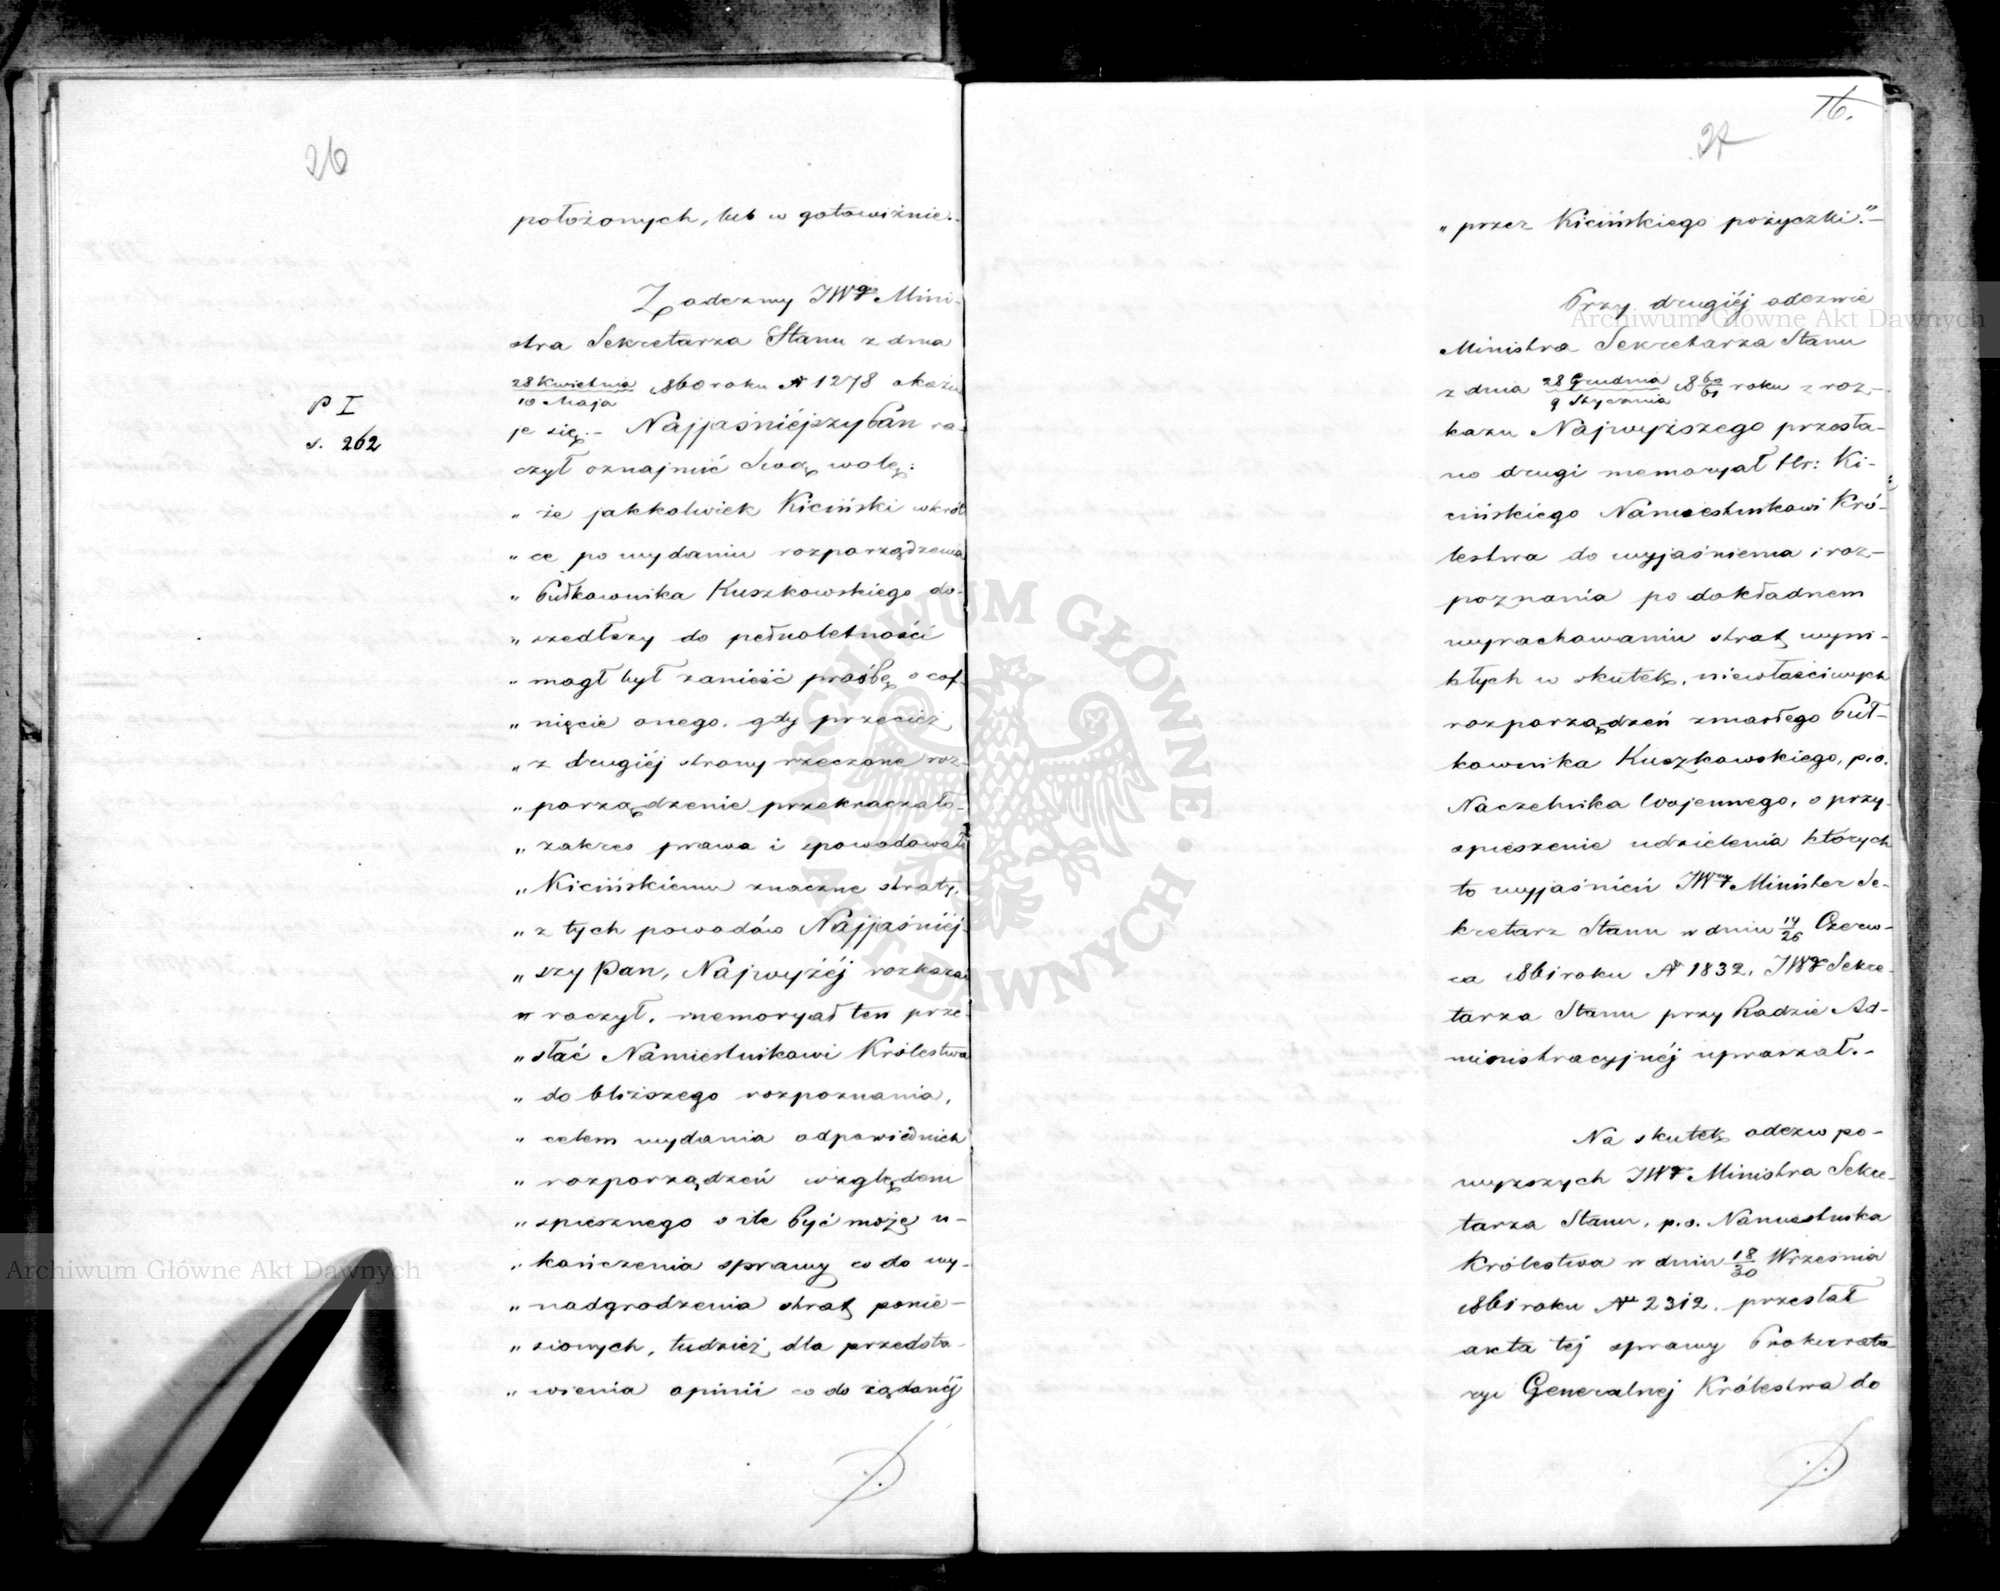 26
położonych, lub w gotowiźnie.-
Z odezwy JWgo Mini-
stra Sekretarza Stanu z dnia
28 Kwietnia
10 Maja
1860 roku № 1278 okazu
je się.- Najjaśniéjszy Pan ra-
czył oznajmić Swą wolę:
P I
s. 262
„ że jakkolwiek Kiciński wkrót
„ ce po wydaniu rozporządzenia
„ Pułkownika Kuszkowskiego do-
„ szedłszy do pełnoletności
„ mógł był zanieść prośbę o cof-
„ nięcie onego, gdy przecież
„ z drugiéj strony rzeczone roz-
„ porządzenie przekraczało
„ zakres prawa i spowodowało
„ Kicińskiemu znaczne straty,
„ z tych powodów Najjaśniéj-
„ szy Pan, Najwyżéj rozkazać
„ raczył, memoryał ten prze-
„ słać Namiestnikowi Królestwa
„ do bliższego rozpoznania,
„ celem wydania odpowiednich
„ rozporządzeń względem
„ spiesznego o ile być może u-
„ kończenia sprawy co do wy-
„ nadgrodzenia strat ponie-
„ sionych, tudzież dla przedsta-
„ wienia opinii co do żądanéj
16.
27
„ przez Kicińskiego pożyczki."-
Przy drugiéj odezwie
Ministra Sekretarza Stanu
z dnia 28 Grudnia
9 Stycznia
18 60/61 roku z roz-
kazu Najwyższego przesła-
no drugi memoryał Hr: Ki-
cińskiego Namiestnikowi Kró-
lestwa do wyjaśnienia i roz-
poznania po dokładnem
wyrachowaniu strat wyni-
kłych w skutek, niewłaściwych
rozporządzeń zmarłego Puł-
kownika Kuszkowskiego, p.o.
Naczelnika Wojennego, o przy-
spieszenie udzielenia których
to wyjaśnień JWny Minister Se-
kretarz Stanu w dniu 14/26 Czerw-
ca 1861 roku № 1832, JWgo Sekre-
tarza Stanu przy Radzie Ad-
ministracyjnéj upraszał.-
Na skutek odezw po-
wyższych JWgo Ministra Sekre-
tarza Stanu, p.o. Namiestnika
Królestwa w dniu 18/30 Września
1861 roku № 2312, przesłał
akta téj sprawy Prokurato-
ryi Generalnej Królestwa do
Archiwum Główne Akt Dawnych
Archiwum Główne Akt Dawnych
ARCHIWUM GŁÓWNE AKT DAWNYCH